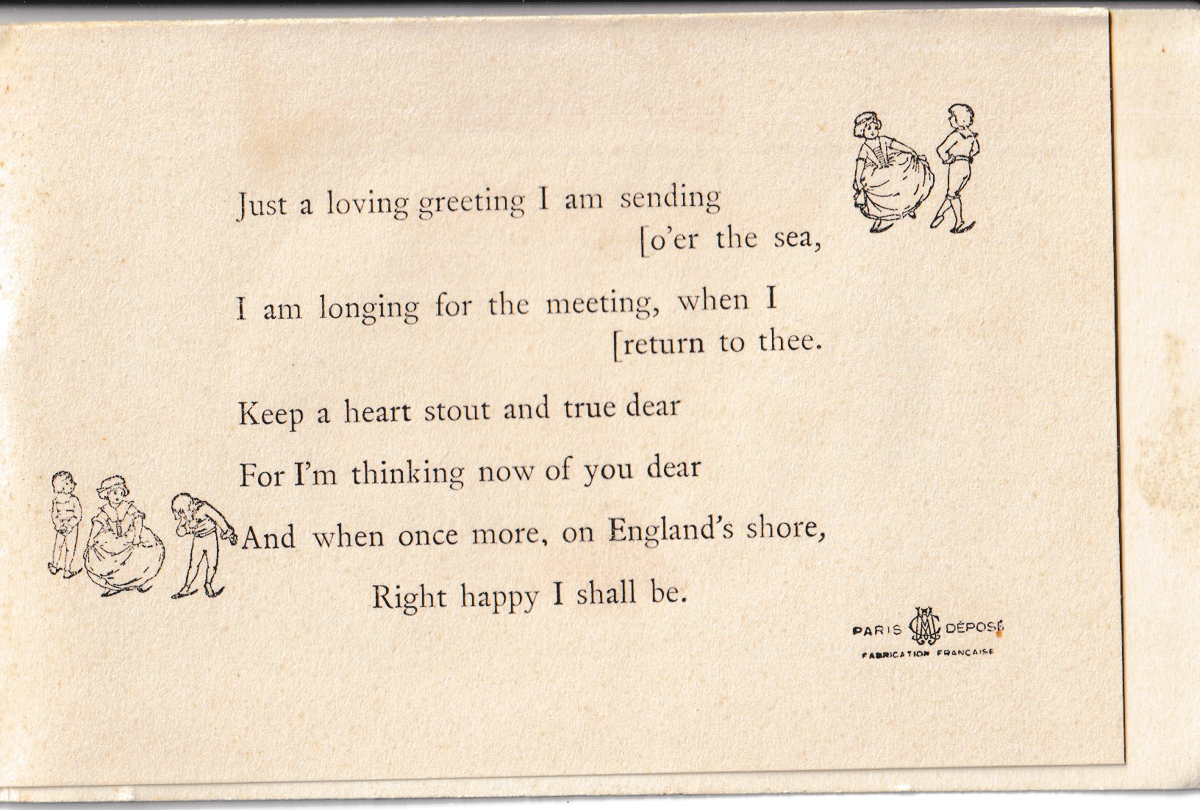 Just a loving greeting I am sending
[o'er the sea,
I am longing for the meeting, when I
[return to thee.
Keep a heart stout and true dear
For I'm thinking now of you dear
And when once more, on England's shore,
Right happy I shall be.
PARIS DÉPOSÉ
FABRICATION FRANÇAISE